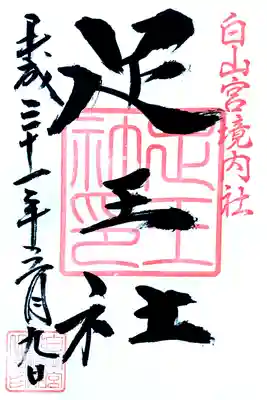 白山宮境内社
足王社
足王神印
平成三十一年二月九日